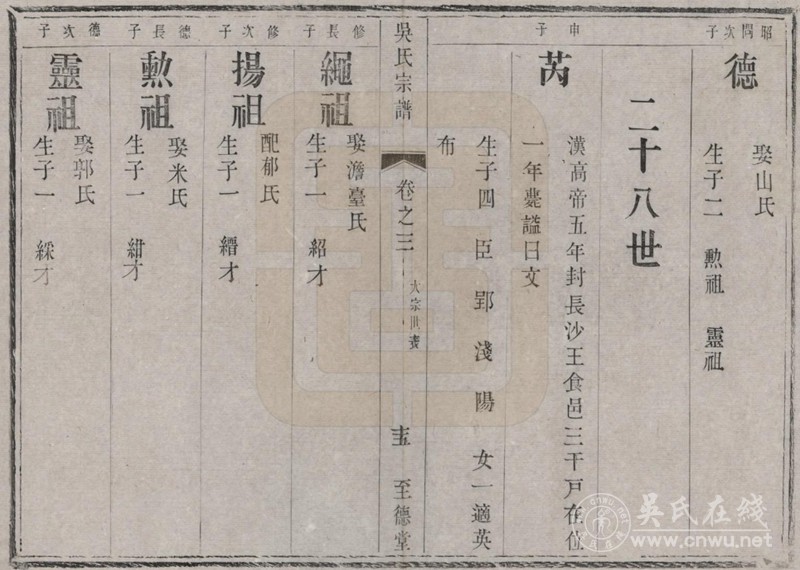 昭閎次子
德
娶山氏
生子二 勲祖 靈祖
二十八世
申子
芮
漢高帝五年封長沙王食邑三千戸在位
一年薨謚曰文
生子四 臣 郢 淺 陽 女一適英
布
吳氏宗譜
卷之三
大宗世表
至德堂
修長子
繩祖
娶澹臺氏
生子一 紹才
修次子
揚祖
配郁氏
生子一 縉才
德長子
勲祖
娶米氏
生子一 紺才
德次子
靈祖
娶郭氏
生子一 綵才
吳氏在线
www.cnwu.net